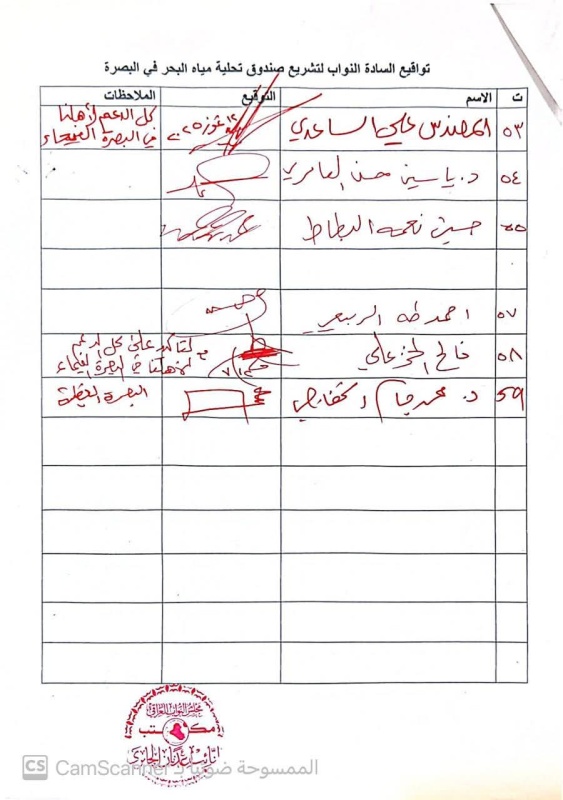 تواقيع السادة النواب لتشريع صندوق تحلية مياه البحر في البصرة
ت الاسم التوقيع الملاحظات
٥٣ المهندس علي الساعدي تموز ٢٠٢٥ كل الدعم لأهلنا
في البصرة الفيحاء
٥٤ د. ياسين حسن العامري
٥٥ حسين نعمه البطاط
٥٧ احمد طه الربيعي
٥٨ فالح الخزعلي
لأهلنا في البصرة الفيحاء
٥٩ د. محمد جاسم الخفاجي البصرة
مجلس النواب العراقي
مكتب
النائب عدنان الجابري
CS CamScanner الممسوحة ضوئيا بـ